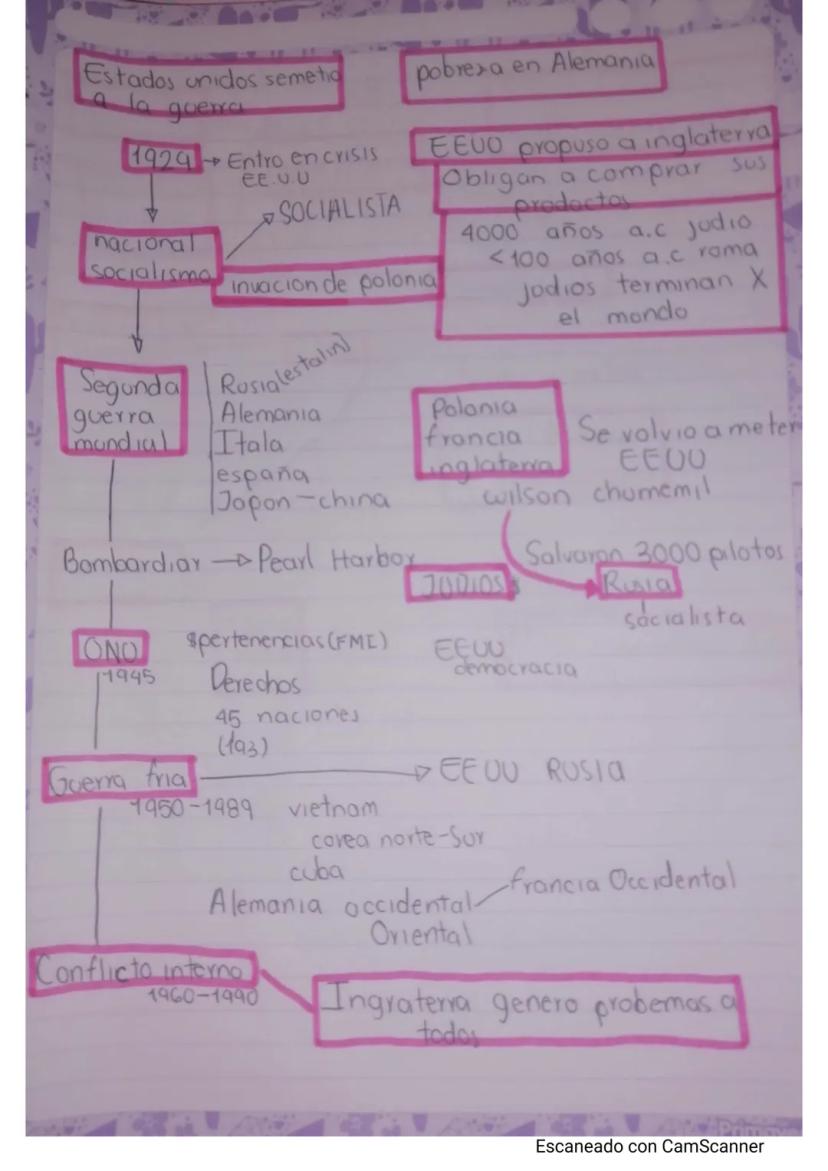 Estados unidos semetio
a la guerra
pobreza en Alemania
1929 → Entro en crisis
EE.U.U
EEUU propuso a inglaterra
Obligan a comprar sus
productos
SOCIALISTA
nacional
socialismo
invacion de polonia
4000 años a.c judio
<100 años a.c roma
judios terminan X
el mundo
Segunda
guerra
mundial
Rusia (estalin)
Alemania
Itala
españa
Japon - china
Polonia
francia
inglaterra
Se volvio a meter
EEUU
wilson chumemil
Bombardiar → Pearl Harbor
Salvaron 3000 pilotos
JUDIOS
Rusia
socialista
ONU
1945
$pertenencias (FMI)
Derechos
45 naciones
(193)
EEUU
democracia
Guerra fria → EEUU RUSIA
1950-1989 vietnam
corea norte-Sur
cuba
Alemania occidental
Oriental
francia Occidental
Conflicto interno
1960-1990
Ingraterra genero probemas a
todos
Escaneado con CamScanner